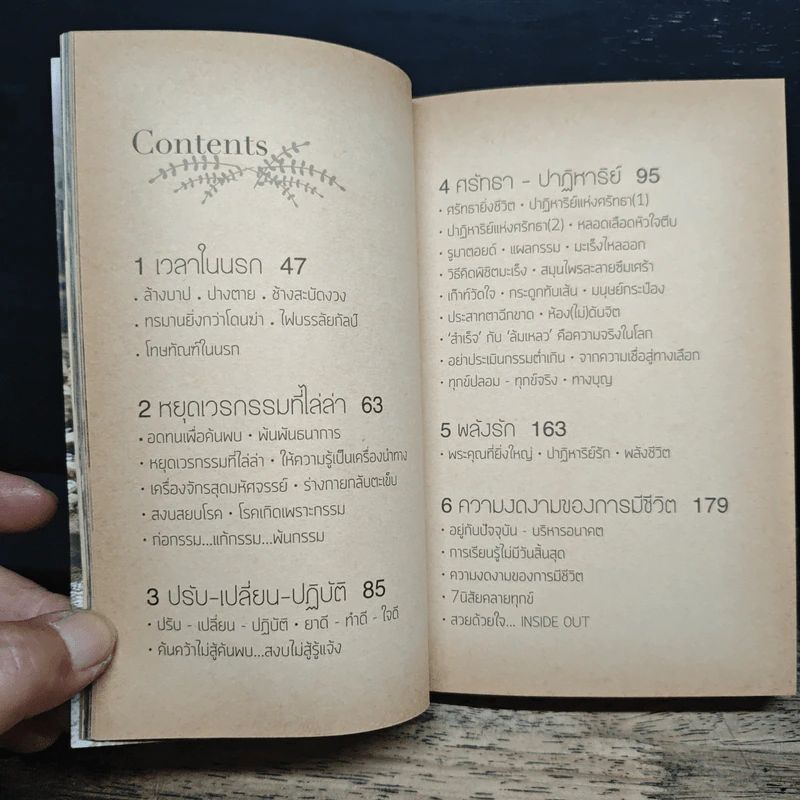 Contents
1 เวลาในนรก 47
. ล้างบาป . ปางตาย . ช้างสะบัดงวง
. ทรมานยิ่งกว่าโดนฆ่า . ไฟบรรลัยกัลป์
. โทษทัณฑ์ในนรก
2 หยุดเวรกรรมที่ไล่ล่า 63
• อดทนเพื่อค้นพบ • พันพันธนาการ
• หยุดเวรกรรมที่ไล่ล่า • ให้ความรู้เป็นเครื่องนำทาง
• เครื่องจักรสุดมหัศจรรย์ • ร่างกายกลับตะเข็บ
• สงบสยบโรค • โรคเกิดเพราะกรรม
• ก่อกรรม...แก้กรรม...พ้นกรรม
3 ปรับ-เปลี่ยน-ปฏิบัติ 85
• ปรับ - เปลี่ยน - ปฏิบัติ • ยาดี - ทำดี - ใจดี
• ค้นคว้าไม่สู้ค้นพบ...สงบไม่สู้รู้แจ้ง
4 ศรัทธา - ปาฏิหาริย์ 95
• ศรัทธายิ่งชีวิต • ปาฏิหาริย์แห่งศรัทธา(1)
• ปาฏิหาริย์แห่งศรัทธา(2) • หลอดเลือดหัวใจตีบ
• รูมาตอยด์ • แผลกรรม • มะเร็งไหลออก
• วิธีคิดพิชิตมะเร็ง • สมุนไพรละลายซึมเศร้า
• เก๊าท์วัดใจ • กระดูกทับเส้น • มนุษย์กระป๋อง
• ประสาทตาฉีกขาด • ห้อง(ไม่)ดับจิต
• ‘สำเร็จ’ กับ ‘ล้มเหลว’ คือความจริงในโลก
• อย่าประเมินกรรมต่ำเกิน • จากความเชื่อสู่ทางเลือก
• ทุกข์ปลอม - ทุกข์จริง • ทางบุญ
5 พลังรัก 163
• พระคุณที่ยิ่งใหญ่ • ปาฏิหาริย์รัก • พลังชีวิต
6 ความงดงามของการมีชีวิต 179
• อยู่กับปัจจุบัน - บริหารอนาคต
• การเรียนรู้ไม่มีวันสิ้นสุด
• ความงดงามของการมีชีวิต
• 7นิสัยคลายทุกข์
• สวยด้วยใจ... INSIDE OUT